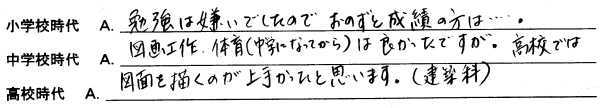 小学校時代 A. 勉強は嫌いでしたので おのずと成績の方は…。
中学校時代 A. 図画工作、体育(中学になってから)は良かったですが。高校では
高校時代 A. 図面を描くのが上手かったと思います。(建築科)